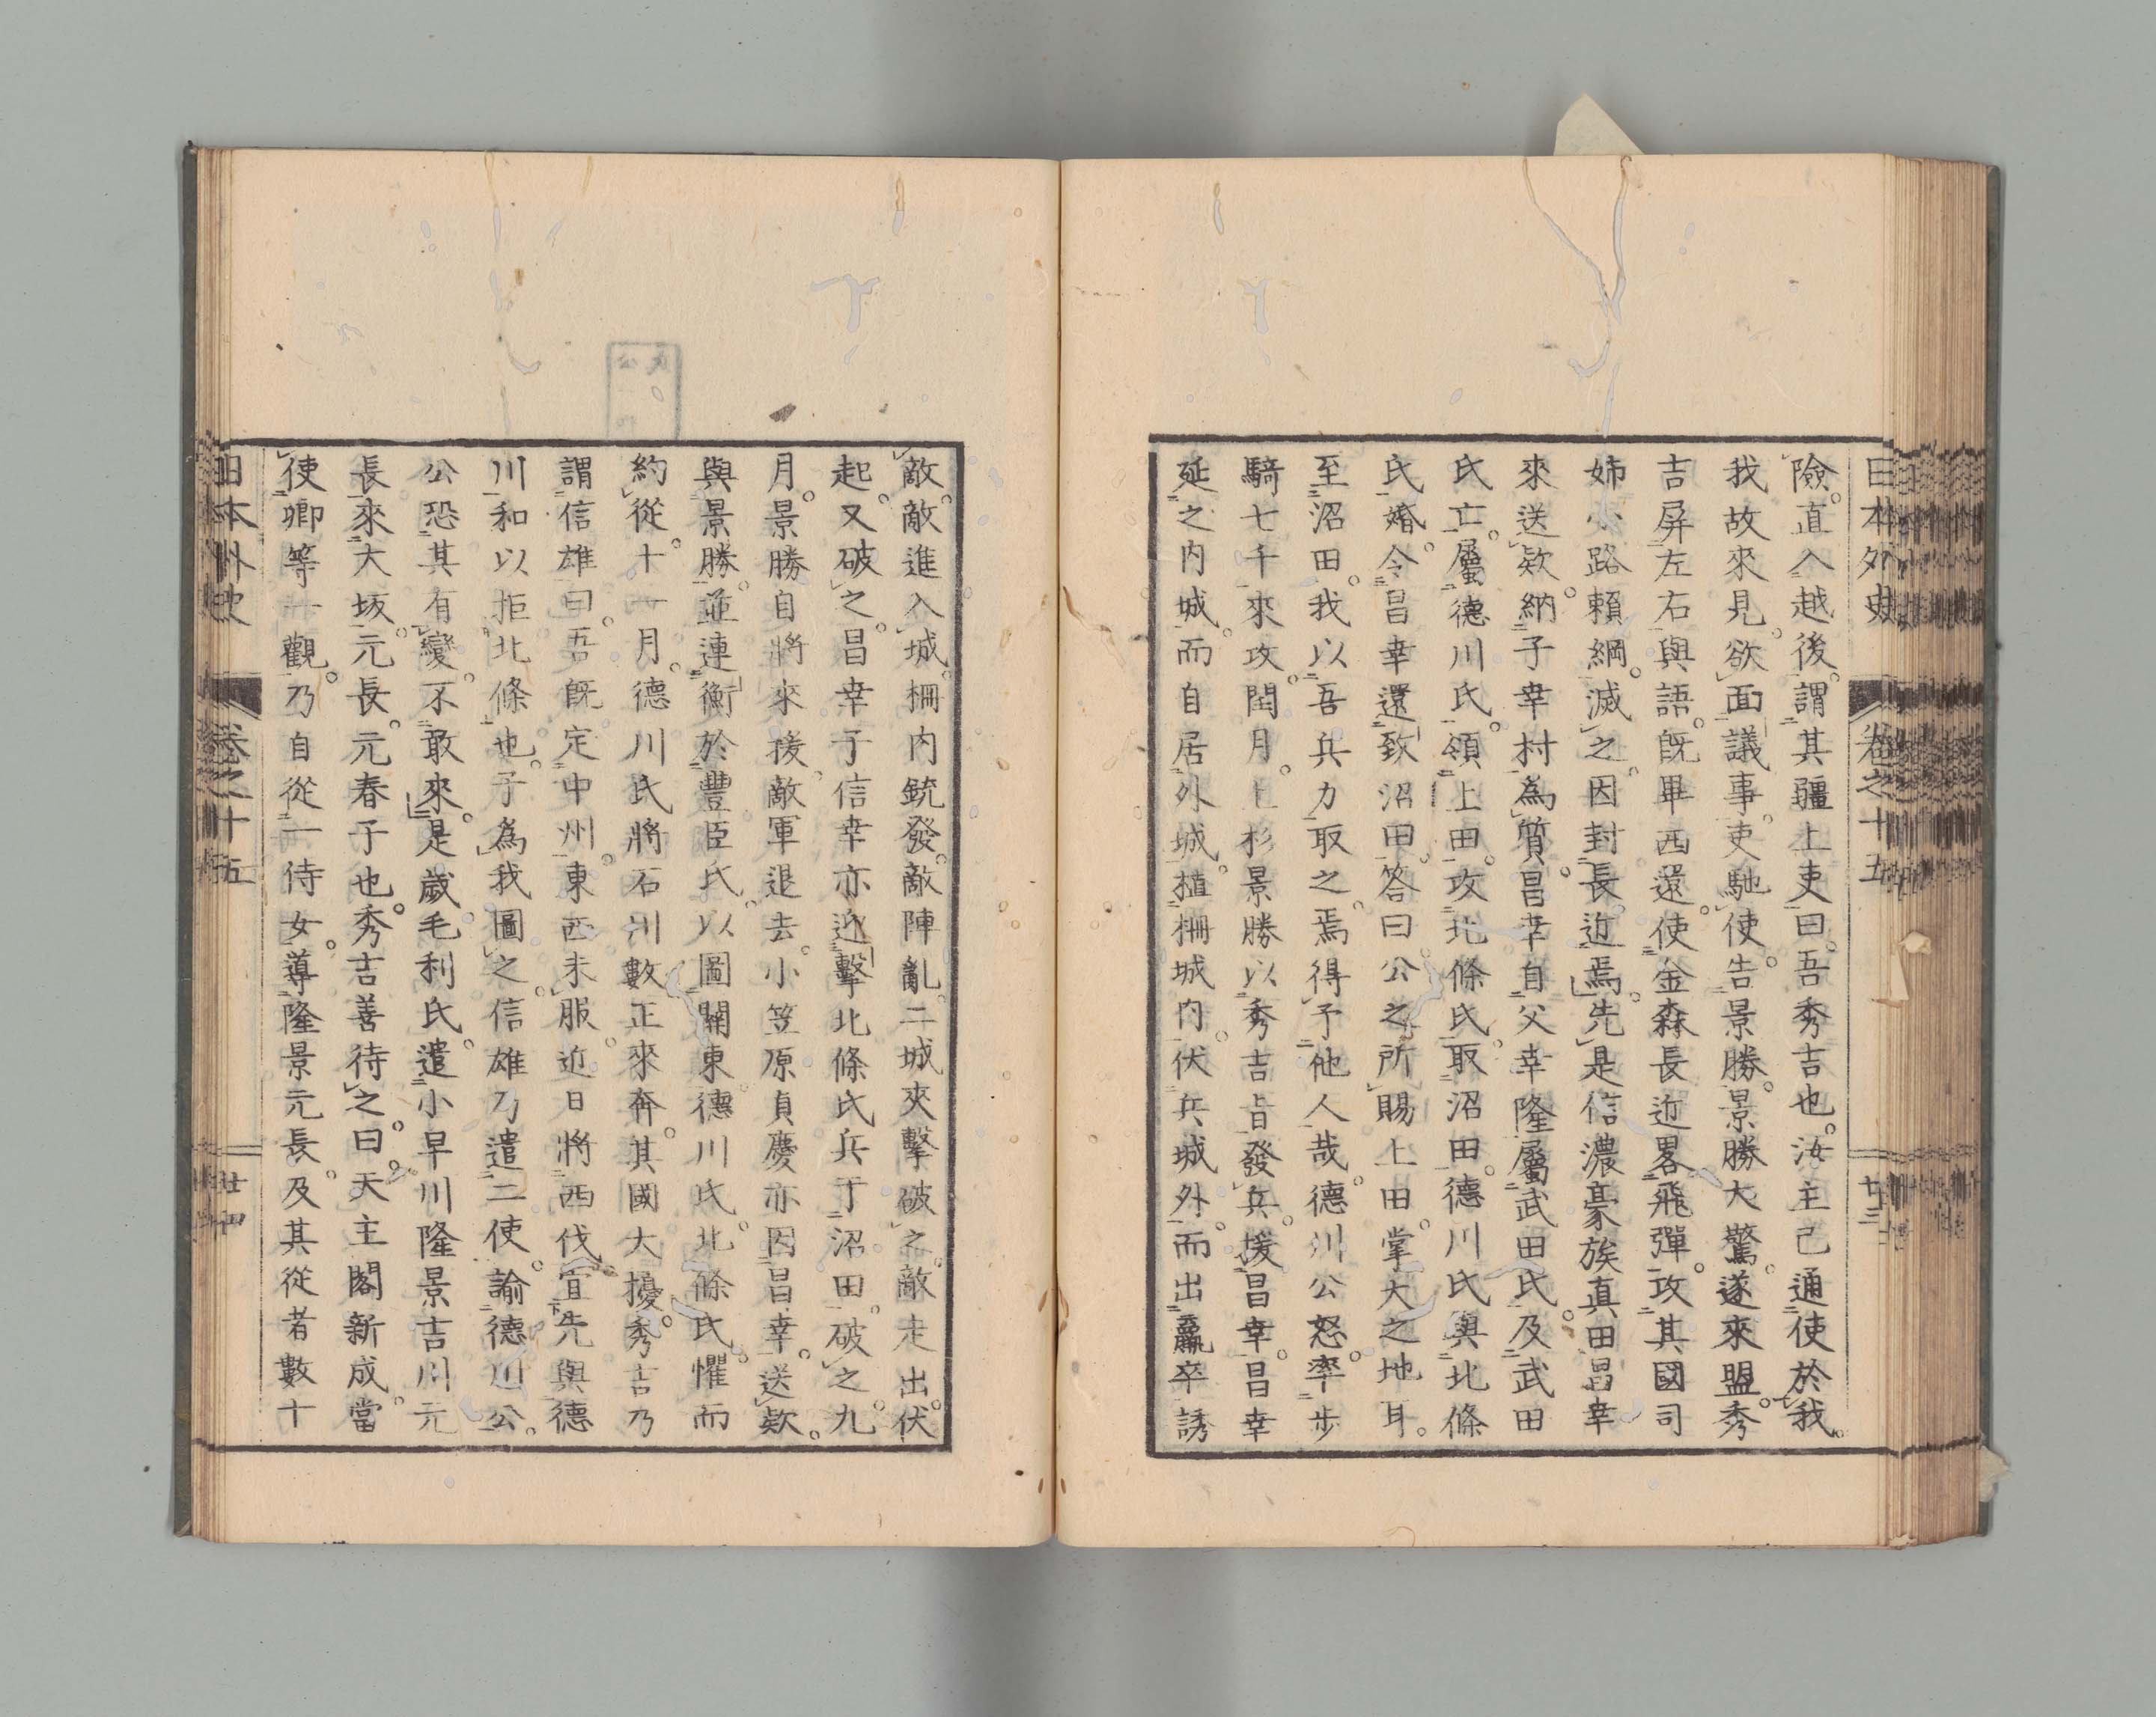 日本外史 卷之十五 廿三
險。直入越後。謂其疆上吏曰。吾秀吉也。汝主已通使於我。
我故來見。欲面議事。吏馳使。告景勝。景勝大驚。遂來盟。秀
吉屏左右與語。既畢西還。使金森長近畧飛彈。攻其國司
姉小路賴綱。滅之。因封長近焉。先是信濃豪族真田昌幸
來送欵。納子幸村為質。昌幸自父幸隆屬武田氏。及武田
氏亡。屬德川氏。領上田。攻北條氏。取沼田。德川氏與北條
氏婚。令昌幸還致沼田。答曰。公之所賜上田掌大之地耳。
至沼田。我以吾兵力取之。焉得予他人哉。德川公怒。率步
騎七千來攻。閏月。上杉景勝以秀吉旨發兵。援昌幸。昌幸
延之内城。而自居外城。植柵城内。伏兵城外。而出羸卒誘
敵。敵進入城。柵内銃發。敵陣亂。二城夾擊破之。敵走出。伏
起。又破之。昌幸子信幸亦逆擊北條氏兵于沼田。破之。九
月。景勝自將來援。敵軍退去。小笠原貞慶亦因昌幸。送欵。
與景勝。並連衡於豐臣氏。以圖關東。德川氏。北條氏。懼而
約從。十一月。德川氏將石川數正來奔。其國大擾。秀吉乃
謂信雄曰。吾既定中州。東西未服。近日將西伐。宜先與德
川和以拒北條也。子為我圖之。信雄乃遣二使。諭德川公。
公恐其有變。不敢來。是歲毛利氏。遣小早川隆景吉川元
長來大坂。元長。元春子也。秀吉善待之。曰。天主閣新成。當
使卿等一觀。乃自從一侍女。導隆景元長。及其從者數十
日本外史 卷之十五 廿四